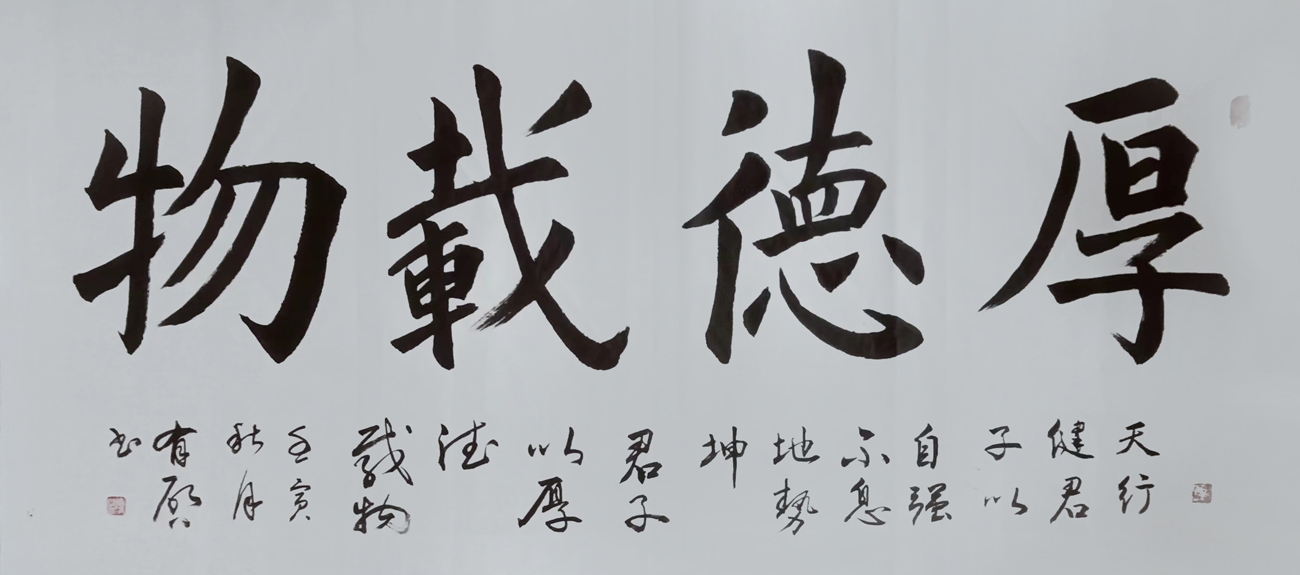 厚德載物
天行
健君
子以
自强
不息
地勢
坤
君子
以厚
德
載物
壬寅
秋月
有
书